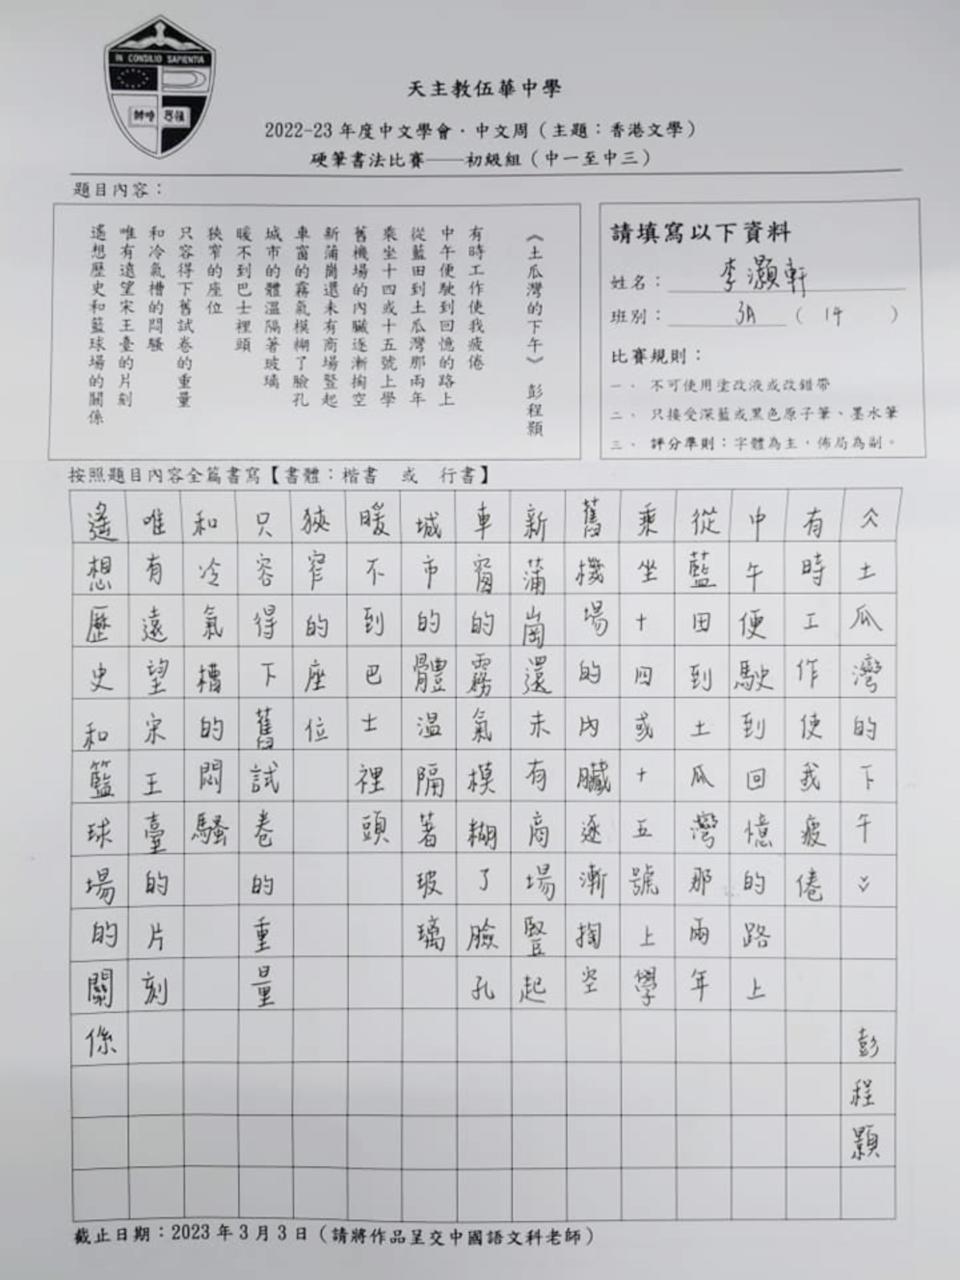 IN CONSILIO SAPIENTIA
天主教伍華中學
2022-23 年度中文學會．中文周（主題：香港文學）
硬筆書法比賽——初級組（中一至中三）
題目內容：
《土瓜灣的下午》 彭程顥
有時工作使我疲倦
中午便駛到回憶的路上
從藍田到土瓜灣那兩年
乘坐十四或十五號上學
舊機場的內臟逐漸掏空
新蒲崗還未有商場豎起
車窗的霧氣模糊了臉孔
城市的體溫隔著玻璃
暖不到巴士裡頭
狹窄的座位
只容得下舊試卷的重量
和冷氣槽的悶騷
唯有遠望宋王臺的片刻
遙想歷史和籃球場的關係
請填寫以下資料
姓名： 李灝軒
班別： 3A （ 14 ）
比賽規則：
一． 不可使用塗改液或改錯帶
二． 只接受深藍或黑色原子筆、墨水筆
三． 評分準則：字體為主，佈局為副。
按照題目內容全篇書寫【書體：楷書 或 行書】
《土瓜灣的下午》 彭程顥
有時工作使我疲倦
中午便駛到回憶的路上
從藍田到土瓜灣那兩年
乘坐十四或十五號上學
舊機場的內臟逐漸掏空
新蒲崗還未有商場豎起
車窗的霧氣模糊了臉孔
城市的體溫隔著玻璃
暖不到巴士裡頭
狹窄的座位
只容得下舊試卷的重量
和冷氣槽的悶騷
唯有遠望宋王臺的片刻
遙想歷史和籃球場的關係
截止日期：2023 年 3 月 3 日（請將作品呈交中國語文科老師）